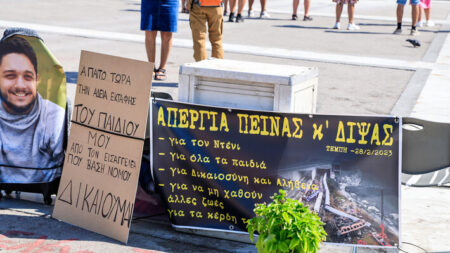 ΑΠΑΙΤΩ ΤΩΡΑ
ΤΗΝ ΑΔΕΙΑ ΕΚΤΑΦΗΣ
ΤΟΥ ΠΑΙΔΙΟΥ
ΜΟΥ
ΑΠΟ ΤΟΝ ΕΙΣΑΓΓΕΛΕΑ
ΠΟΥ ΒΑΣΗ ΝΟΜΟΥ
ΔΙΚΑΙΟΥΜΑΙ
ΑΠΕΡΓΙΑ ΠΕΙΝΑΣ κ' ΔΙΨΑΣ
- για τον Ντένι
ΤΕΜΠΗ -28/2/2023
- για όλα τα παιδιά
- για Δικαιοσύνη και Αλήθεια
- για να μη χαθούν
άλλες ζωές
για τα κέρδη